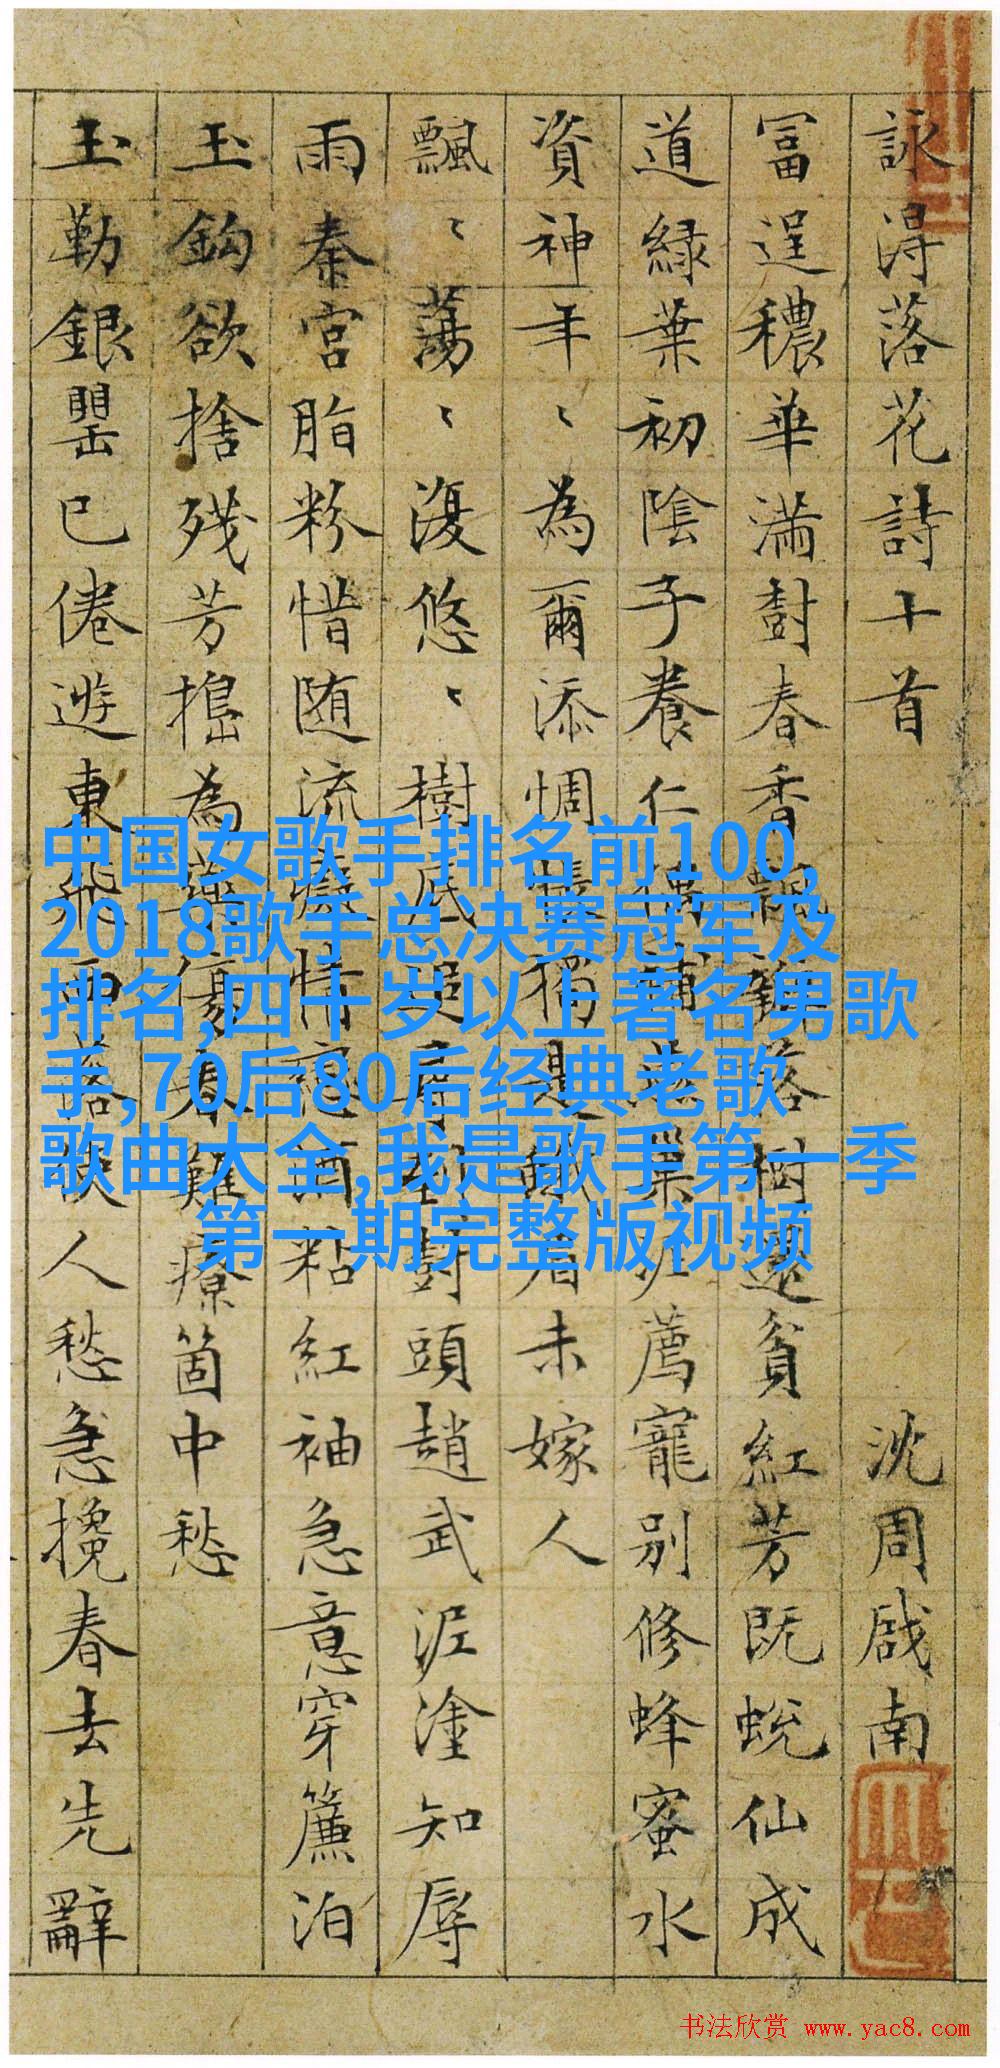 詠得落花詩十首 沈周啟南
冨逞穠華滿樹春香
落樹還貧紅芳既蛻仙成
道緑葉初陰子養仁
薦寵别修蜂蜜水
資神年〻為爾添惆悵獨是
眉未嫁人
飄〻蕩〻復悠〻樹底追尋到樹頭趙武泥塗知辱
雨秦宫脂粉惜随流癡情戀酒粘紅袖急意穿簾泊
玉鈎欲捨殘芳搗為藥傷春難療箇中愁
玉勒銀罌已倦遊東飛西落使人愁急攙春去先辭
中国女歌手排名前100,
2018歌手总决赛冠军及
排名,四十岁以上著名男歌
手,70后80后经典老歌
歌曲大全,我是歌手第一季
第一期完整版视频
书法欣赏 www.yac8.com